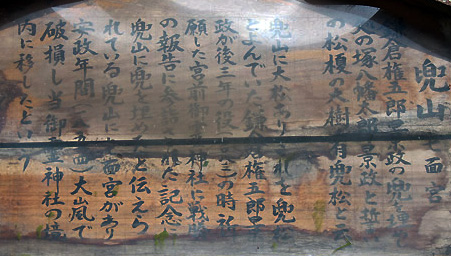 兜山 面宮
鎌倉権五郎景政の兜埋て
人の塚八幡太郎景政と
の松榎の大樹有兜松と云
兜山に大松ありこれを兜
とよんでいた鎌倉権五郎景
政が後三年の役 の時祈
願した宮前御霊神社に戦勝
の報告に れた記念に
兜山に兜を埋 と伝えら
れている兜山 面宮があり
安政年間 大嵐で
破損し当御霊神社の境
内に移したという